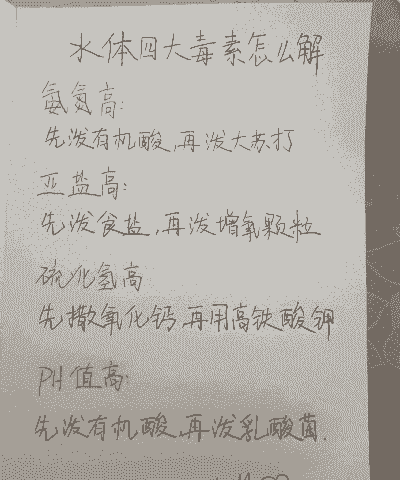 水体四大毒素怎么解
氨氮高:
先泼有机酸,再泼大苏打
亚盐高:
先泼食盐,再泼增氧颗粒
硫化氢高
先撒氧化钙,再用高铁酸钾
PH值高:
先泼有机酸,再泼乳酸菌.